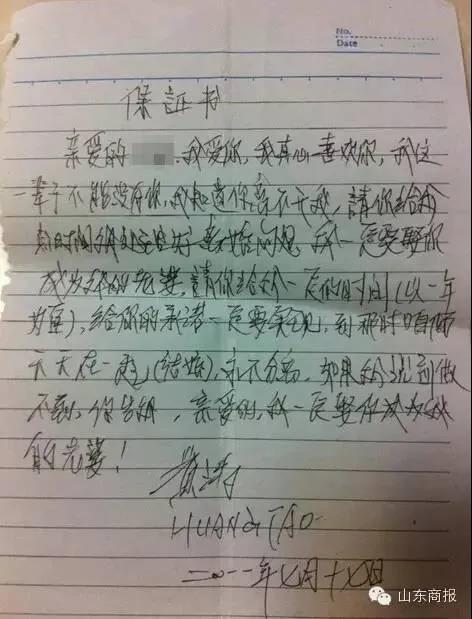 No.
Date
保证书
亲爱的 我爱你,我真心喜欢你,我这
一辈子不能没有你,我知道你离不开我,請你给我
点时间我处理好 婚姻问题,我一定要娶你
成为我的老婆,請你给我一定的时间(以一年
为重),给你的承诺一定要实现,到那时咱俩
天天在一起(结婚),永不分离,如果我说到做
不到,你告我,亲爱的,我一定娶你成为我
的老婆!
黄涛
HUANG TAO
二〇一一年七月十七日
山东商报